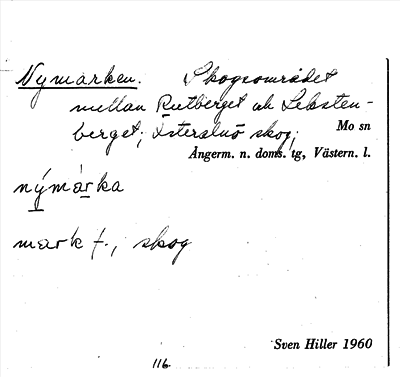 Nymarken. Skogsområdet
mellan Rutberget och Leksten-
berget, skog,
Mo sn
Ångerm. n. doms. tg, Västern. l.
nýmàrka
mark f., skog
Sven Hiller 1960
116